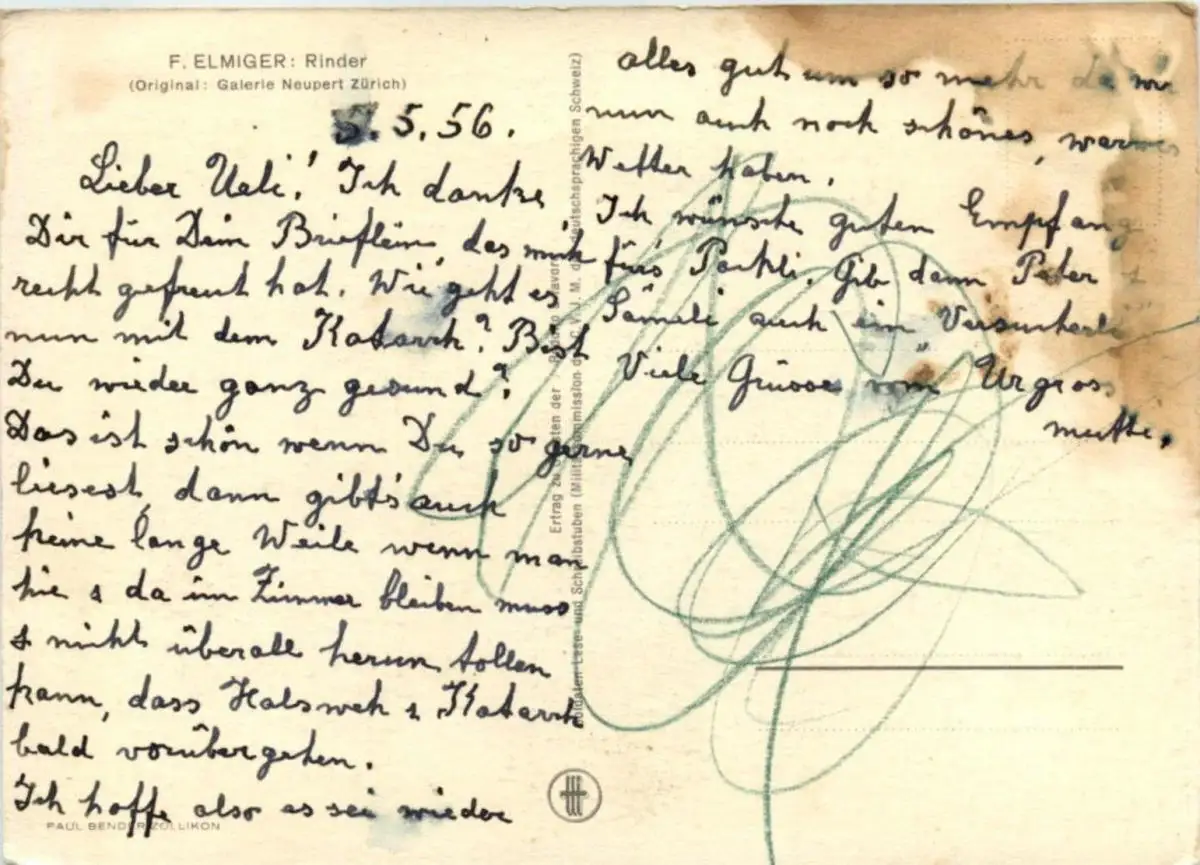 F. ELMIGER: Rinder
(Original: Galerie Neupert Zürich)
5. 5. 56.
Lieber Ueli! Ich danke
Dir für Dein Brieflein, das mich
recht gefreut hat. Wie geht es
nun mit dem Katarrh? Bist
Du wieder ganz gesund?
Das ist schön wenn Du so gerne
liesest, dann gibt's auch
keine lange Weile wenn man
hie & da im Zimmer bleiben muss
& nicht überall herum tollen
kann, dass Halsweh & Katarrh
bald vorübergehen.
Ich hoffe also es sei wieder
PAUL BENDER ZOLLIKON
Ertrag zu der
Soldaten-Lese- und Schreibstuben (Militärkommission d. C. V. J. M. d. deutschsprachigen Schweiz)
alles gut um so mehr da wir
nun auch noch schönes, warmes
Wetter haben.
Ich wünsche guten Empfang
fürs Päckli. Gib dann Peter &
Sämeli auch ein Versucherli
Viele Grüsse vom Urgross
mutti.